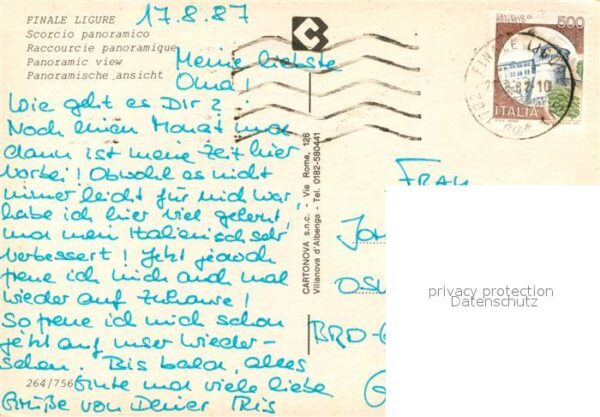 FINALE LIGURE
Scorcio panoramico
Raccourcie panoramique
Panoramic view
Panoramische ansicht
17.8.87
Meine liebste
Oma!
Wie geht es Dir?
Noch einen Monat und
dann ist meine Zeit hier
vorbei! Obwohl es nicht
immer leicht für mich war
habe ich hier viel gelernt
und mein Italienisch sehr
verbessert! Jetzt jedoch
freue ich mich auch mal
wieder auf Zuhause!
So freue ich mich schon
jetzt auf unser Wieder-
sehen. Bis bald, alles
Gute und viele liebe
Grüße von Deiner Iris
264/756
CARTONOVA s.n.c. - Via Roma, 126
Villanova d'Albenga - Tel. 0182-580441
CASTELLO DI
500
ITALIA
FINALE LIG
FRAU
BRD-
privacy protection
Datenschutz